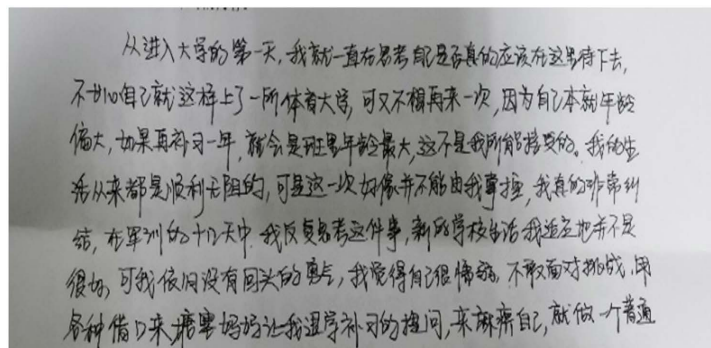 从进入大学的第一天,我就一直在思考自己是否真的应该在这里待下去,
不甘心自己就这样上了一所体育大学,可又不想再来一次,因为自己本就年龄
偏大,如果再补习一年,就会是班里年龄最大,这不是我所能接受的。我的生
活从来都是顺利无阻的,可是这一次好像并不能由我掌控,我真的非常纠
结,在军训的十几天中,我反复思考这件事,新的学校生活我适应地并不是
很好,可我依旧没有回头的勇气,我觉得自己很懦弱,不敢面对挑战,用
各种借口来搪塞妈妈让我退学补习的提问,来麻痹自己,就做一个普通